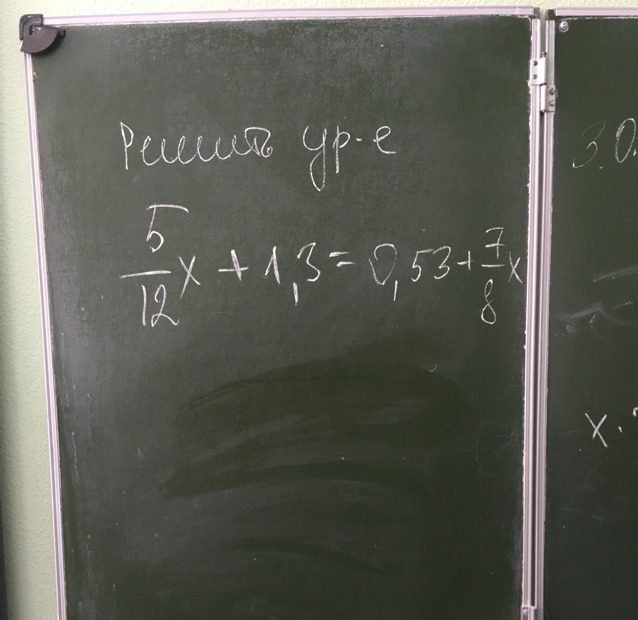 Решить ур-е
5/12 x + 1,3 = 0,53 + 7/8 x
3.0
x ·